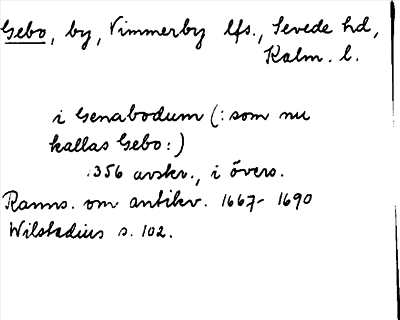 Gebo, by, Vimmerby lfs., Sevede hd,
Kalm. l.
i Genabodum (: som nu
kallas Gebo:)
1356 avskr., i övers.
Ranns. om antikv. 1667-1690
Wilstadius s. 102.